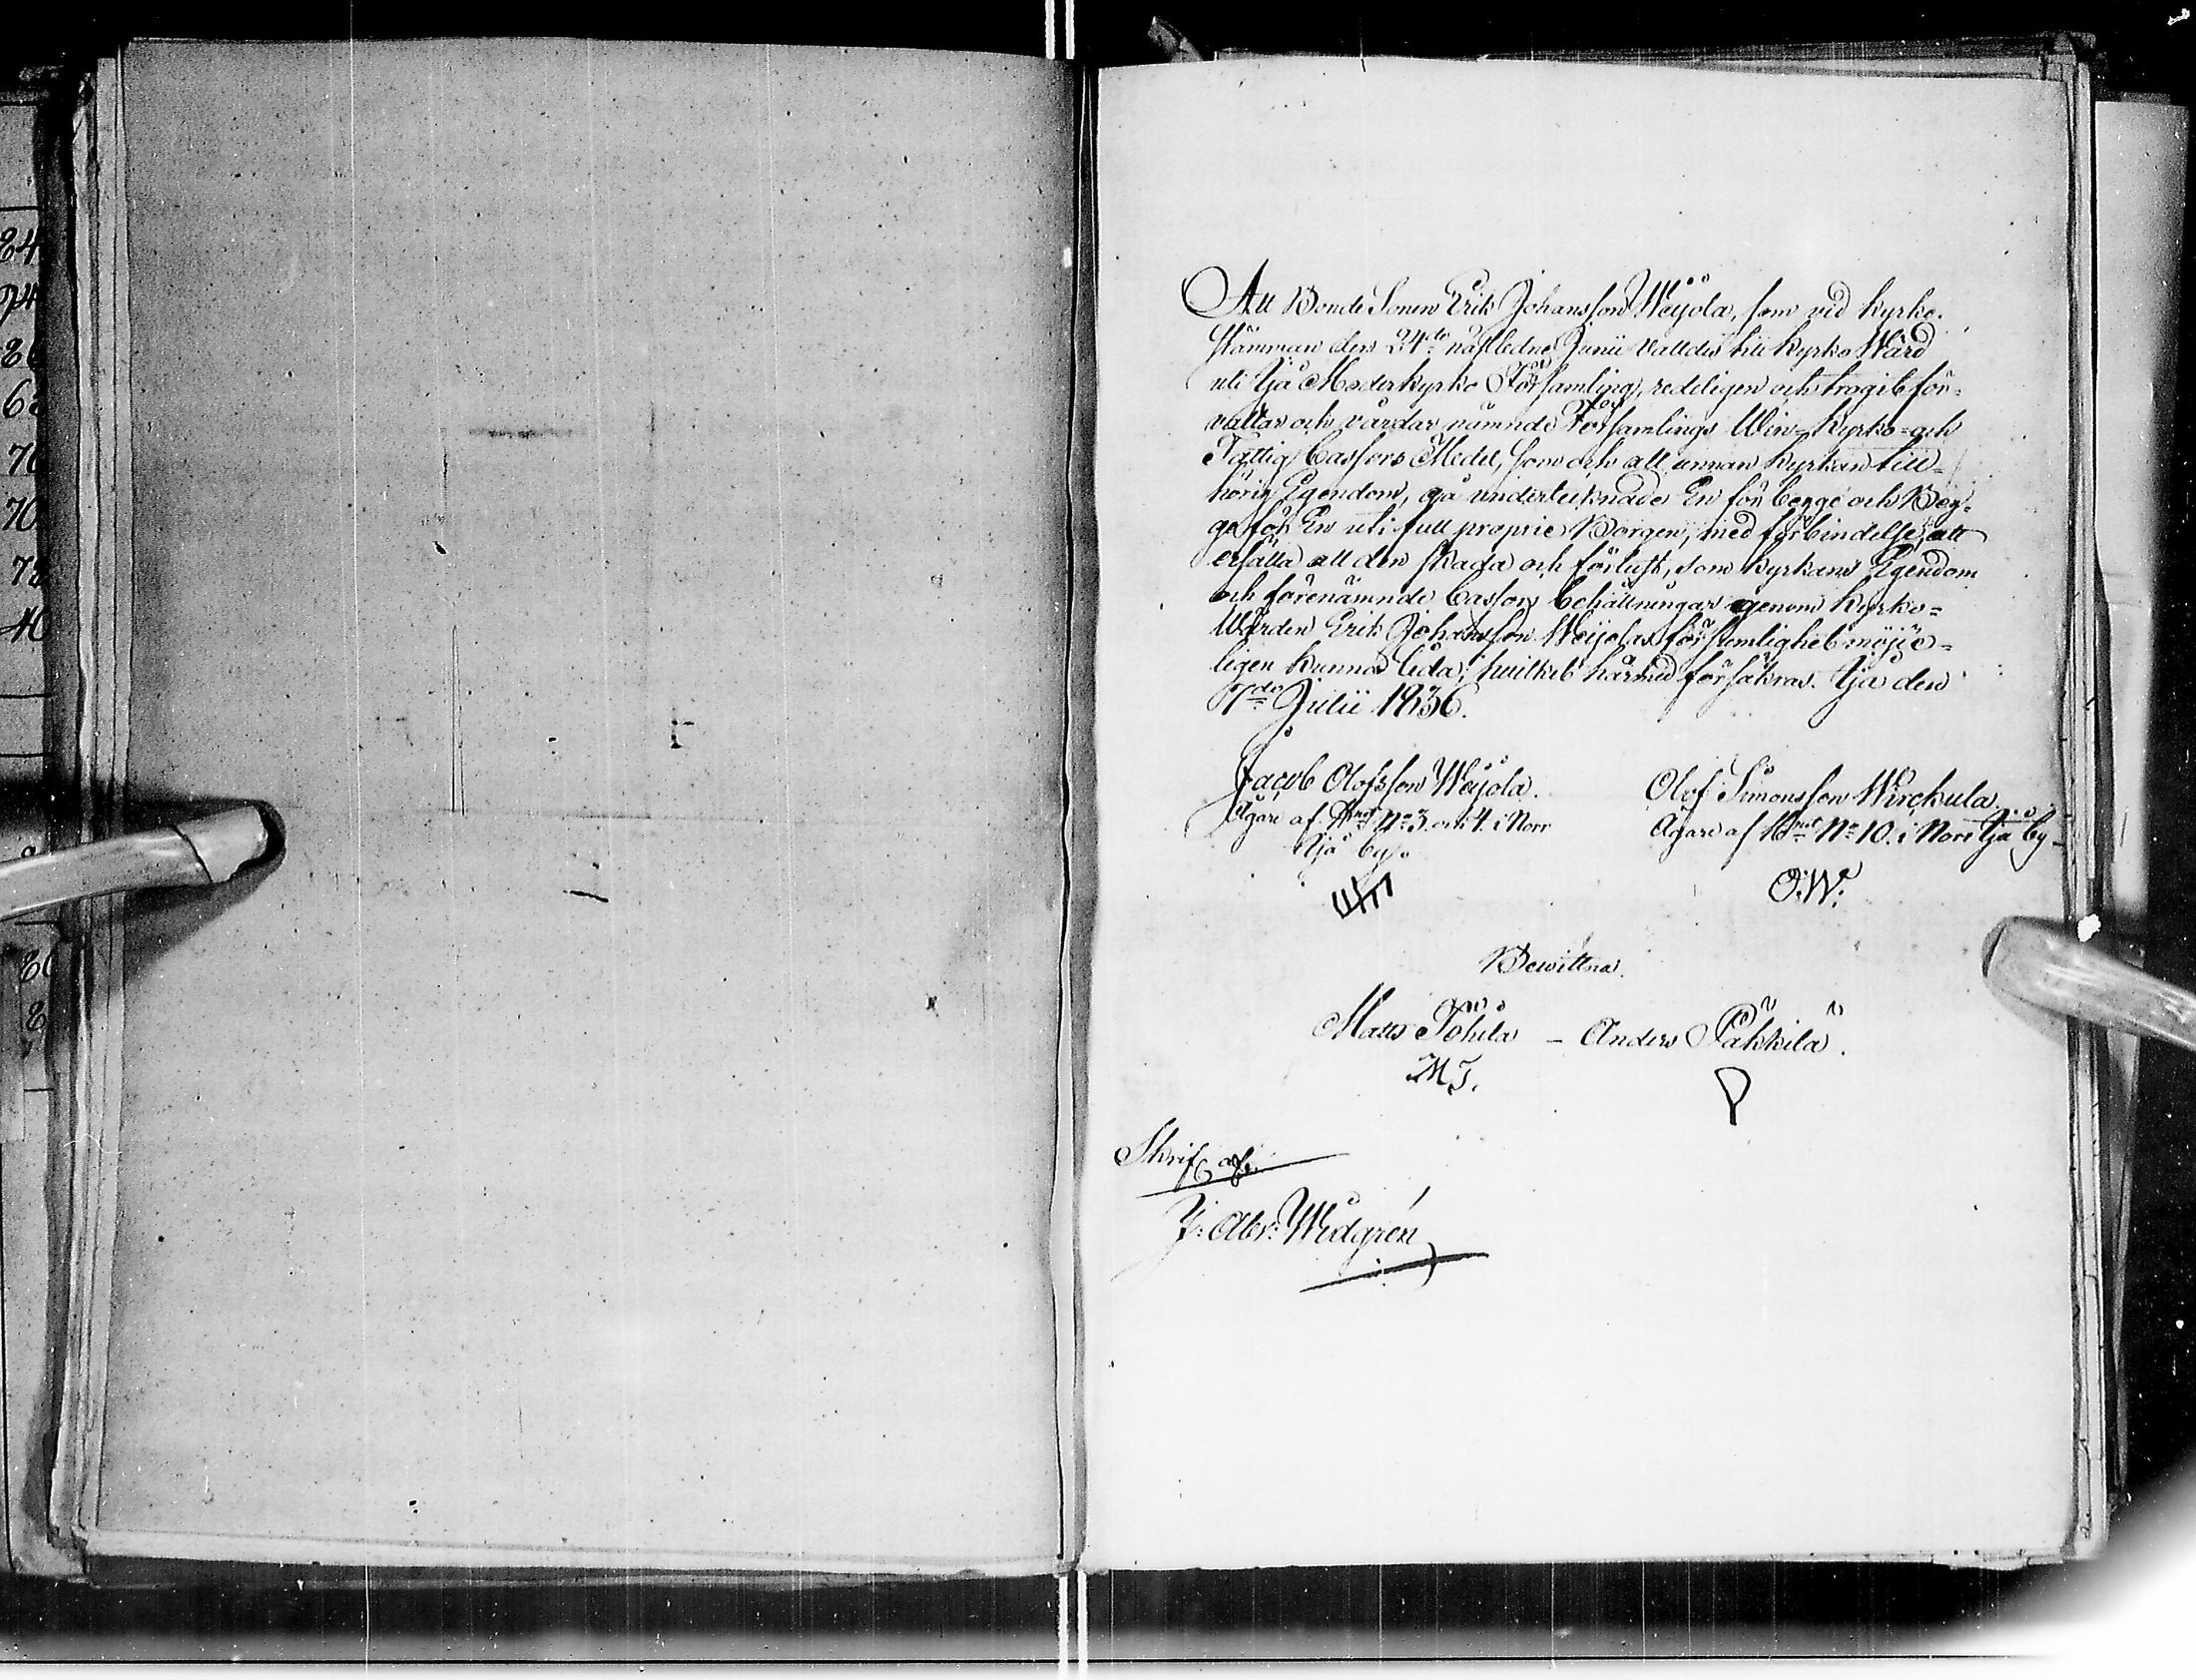 24
74
26
62
76
70
72
40
Att Bonde Sonen Erik Johansson Weijola, som vid Kyrko-
stämman den 24de näsledne Junii valldes till Kyrko Wärd
uti Ijå Moderkyrko Församling, redeligen och trogit för-
valtar och vårdar nämnde Församlings Win- Kyrko- och
Fattig Cassors Medel, som och all annan Kyrkan till-
hörig Egendom, gå undertecknade En för begge och Beg-
ge för En uti full proprie Borgen, med förbindelse, att
ersätta all den skada och förlust, som kyrkans Egendom
och förenämnde Cassors behållningar genom Kyrko-
Wärden Erik Johansson Weijolas försumlighet möjje-
ligen kunna lida; hwilket härmed försäkras. Ijå den
7de Julii 1836.
Jacob Olofsson Weijola.
Ägare af No 3. och 4. i Norr
Ijå by.
Olof Simonsson Wirckula
Ägare af No 10. i Norr Ijå by.
O.W.
Bewittna.
Matts Töhilä — Anders Päkkilä.
M T.
P
Skrif. af.
J: Abr: Widgrén